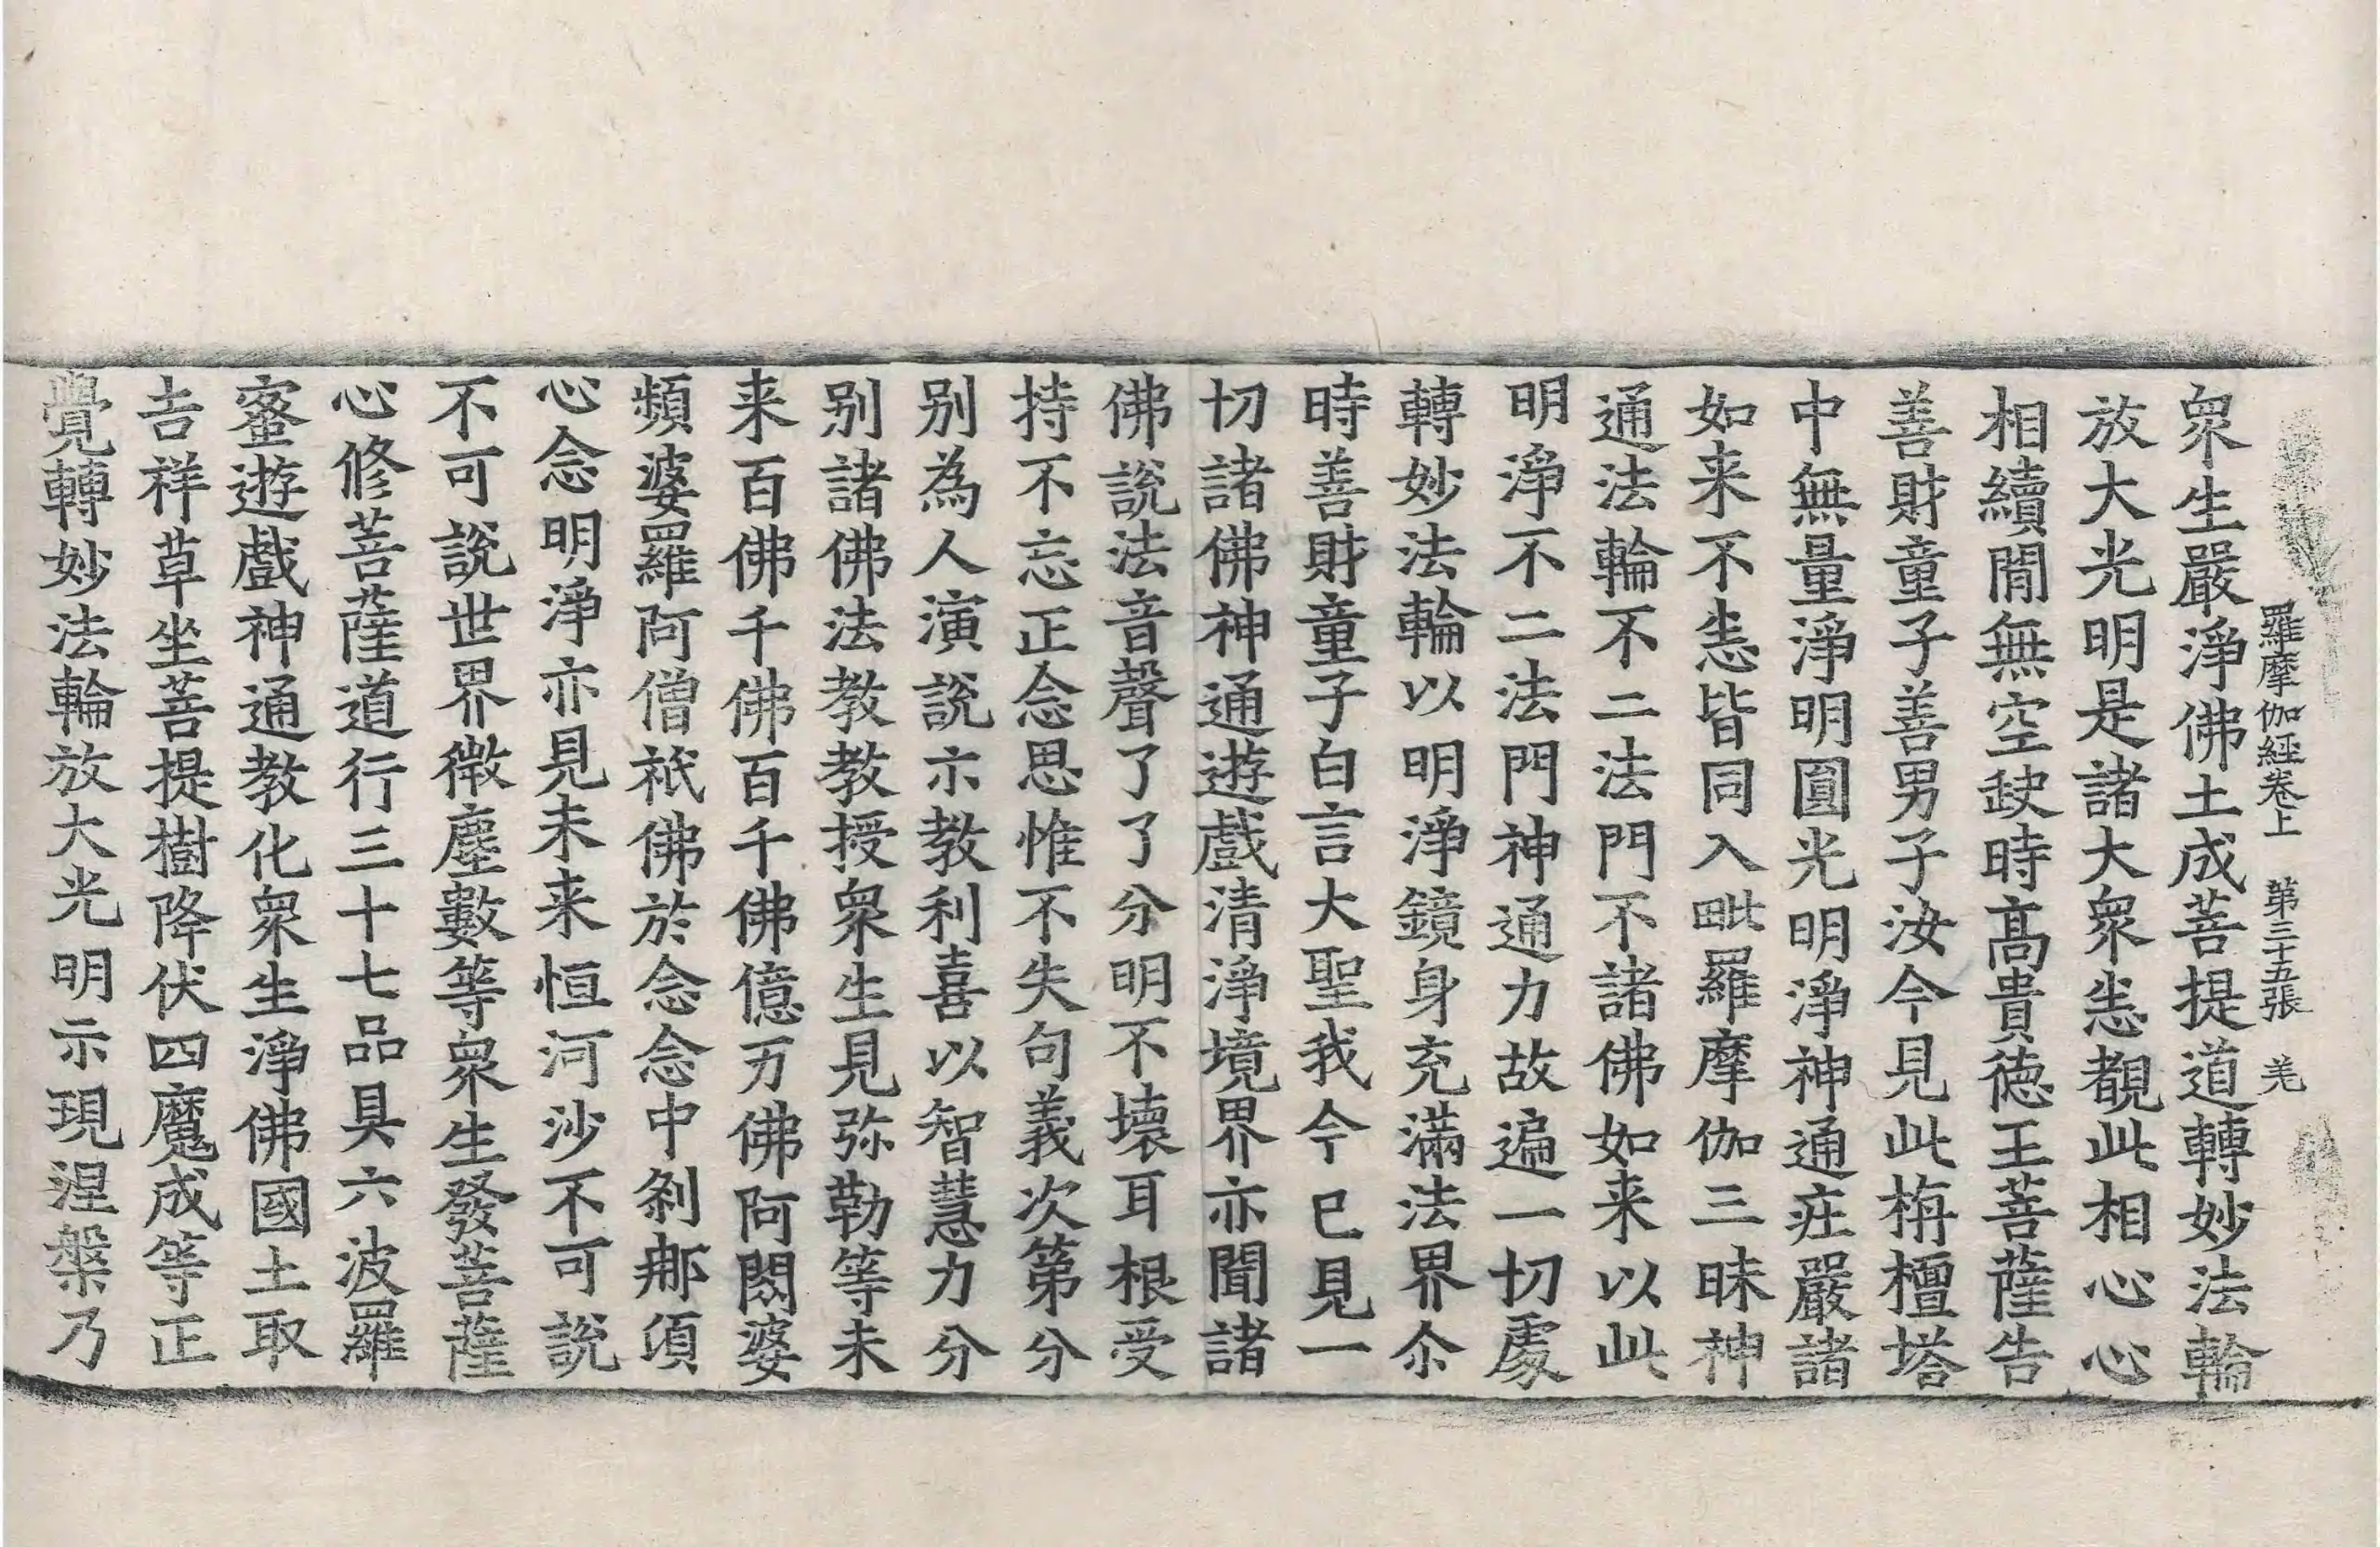 羅摩伽經卷上　第三十五張　羌
衆生嚴淨佛土成菩提道轉妙法輪
放大光明是諸大衆悉覩此相心心
相續閒無空缺時髙貴德王菩薩告
善財童子善男子汝今見此栴檀塔
中無量淨明圓光明淨神通莊嚴諸
如来不恙皆同入毗羅摩伽三昧神
通法輪不二法門不諸佛如来以此
明淨不二法門神通力故遍一切處
轉妙法輪以明淨鏡身充滿法界尒
時善財童子白言大聖我今已見一
切諸佛神通遊戲清淨境界亦聞諸
佛說法音聲了了分明不壞耳根受
持不忘正念思惟不失句義次第分
別為人演說示教利喜以智慧力分
別諸佛法教教授衆生見弥勒等未
来百佛千佛百千佛億万佛阿閦婆
頻婆羅阿僧祇佛於念念中剎那湏
心念明淨亦見未来恒河沙不可說
不可說世界微塵數等衆生發菩薩
心修菩薩道行三十七品具六波羅
蜜遊戲神通教化衆生淨佛國土取
吉祥草坐菩提樹降伏四魔成等正
覺轉妙法輪放大光明示現涅槃乃